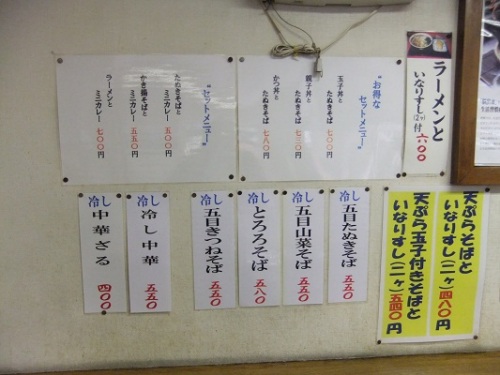 ラーメンと
いなりずし(2ヶ)付 六〇〇
"お得な
セットメニュー"
玉子丼と
たぬきそば 六〇〇円
親子丼と
たぬきそば 七三〇円
かつ丼と
たぬきそば 七八〇円
"セットメニュー"
たぬきそばと
ミニカレー 五〇〇円
かき揚そばと
ミニカレー 五五〇円
ラーメンと
ミニカレー 七〇〇円
天ぷらそばと
いなりずし(二ヶ)四八〇円
天ぷら玉子付きそばと
いなりずし(二ヶ)五四〇円
冷し
五目たぬきそば 五五〇
冷し
五目山菜そば 五五〇
冷し
とろろそば 五八〇
冷し
五目きつねそば 五五〇
冷し中華 五五〇
冷し
中華ざる 四〇〇